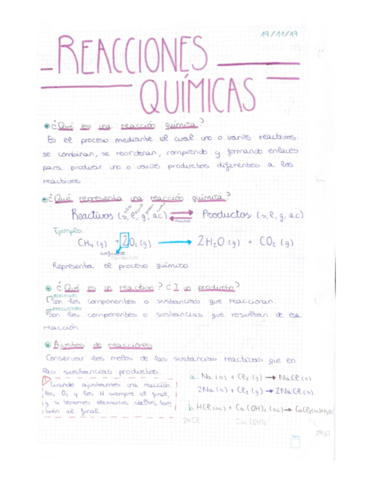 19/11/19
REACCIONES
QUÍMICAS
¿Qué es una reacción química?
Es el proceso mediante el cual uno o varios reactivos
se combinan, se reordenan, rompiendo y formando enlaces
para producir uno o varios productos diferentes a los
reactivos
¿Qué representa una reacción química?
Reactivos (s, l, g, ac) Productos (s, l, g, ac)
Ejemplo:
CH₄ (g) + 2O₂ (g) → 2H₂O (g) + CO₂ (g)
Representa el proceso químico
¿Qué es un reactivo? ¿I un producto?
Son los componentes o sustancias que reaccionan.
Son los componentes o sustancias que resultan de esa
reacción
Ajustes de reacciones
Conservar los moles de las sustancias reactivas que en
las sustancias productos.
Cuando ajustamos una reacción
los O₂ y los H siempre al final,
y si tenemos elementos
al final.
a. Na (s) + Cl₂ (g) → NaCl (s)
2Na (s) + Cl₂ (g) → 2NaCl (s)
b. HCl (s) + Ca(OH)₂ (s) →